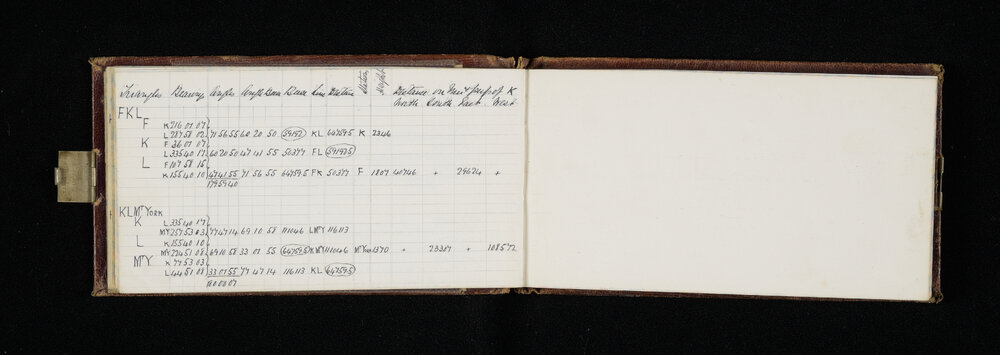 Triangles Bearing Angles Angle Base Base Line Distance Station Height Distance on Merd & perp of K
North South East West
FKL
F K 216 01 07
L 287 58 02 71 56 55 60 20 50 59192 KL 64759.5 K 2346
K F 36 01 07
L 335 40 17 60 20 50 47 41 55 50377 FL 59192.5
L F 107 58 15
K 155 40 10 47 41 55 71 56 55 64759.5 FK 50377 F 1807 40746 + 29624 +
179 59 40
KL Mt York
K L 335 40 17
MY 257 53 03 77 47 14 69 10 58 111046 L MtY 116113
L K 155 40 10
MY 224 51 08 69 10 58 33 01 55 64759.5 K MY 111046 Mt York 1370 + 23307 + 108572
MtY K 77 53 03
L 44 51 08 33 01 55 77 47 14 116113 KL 64759.5
180 00 07